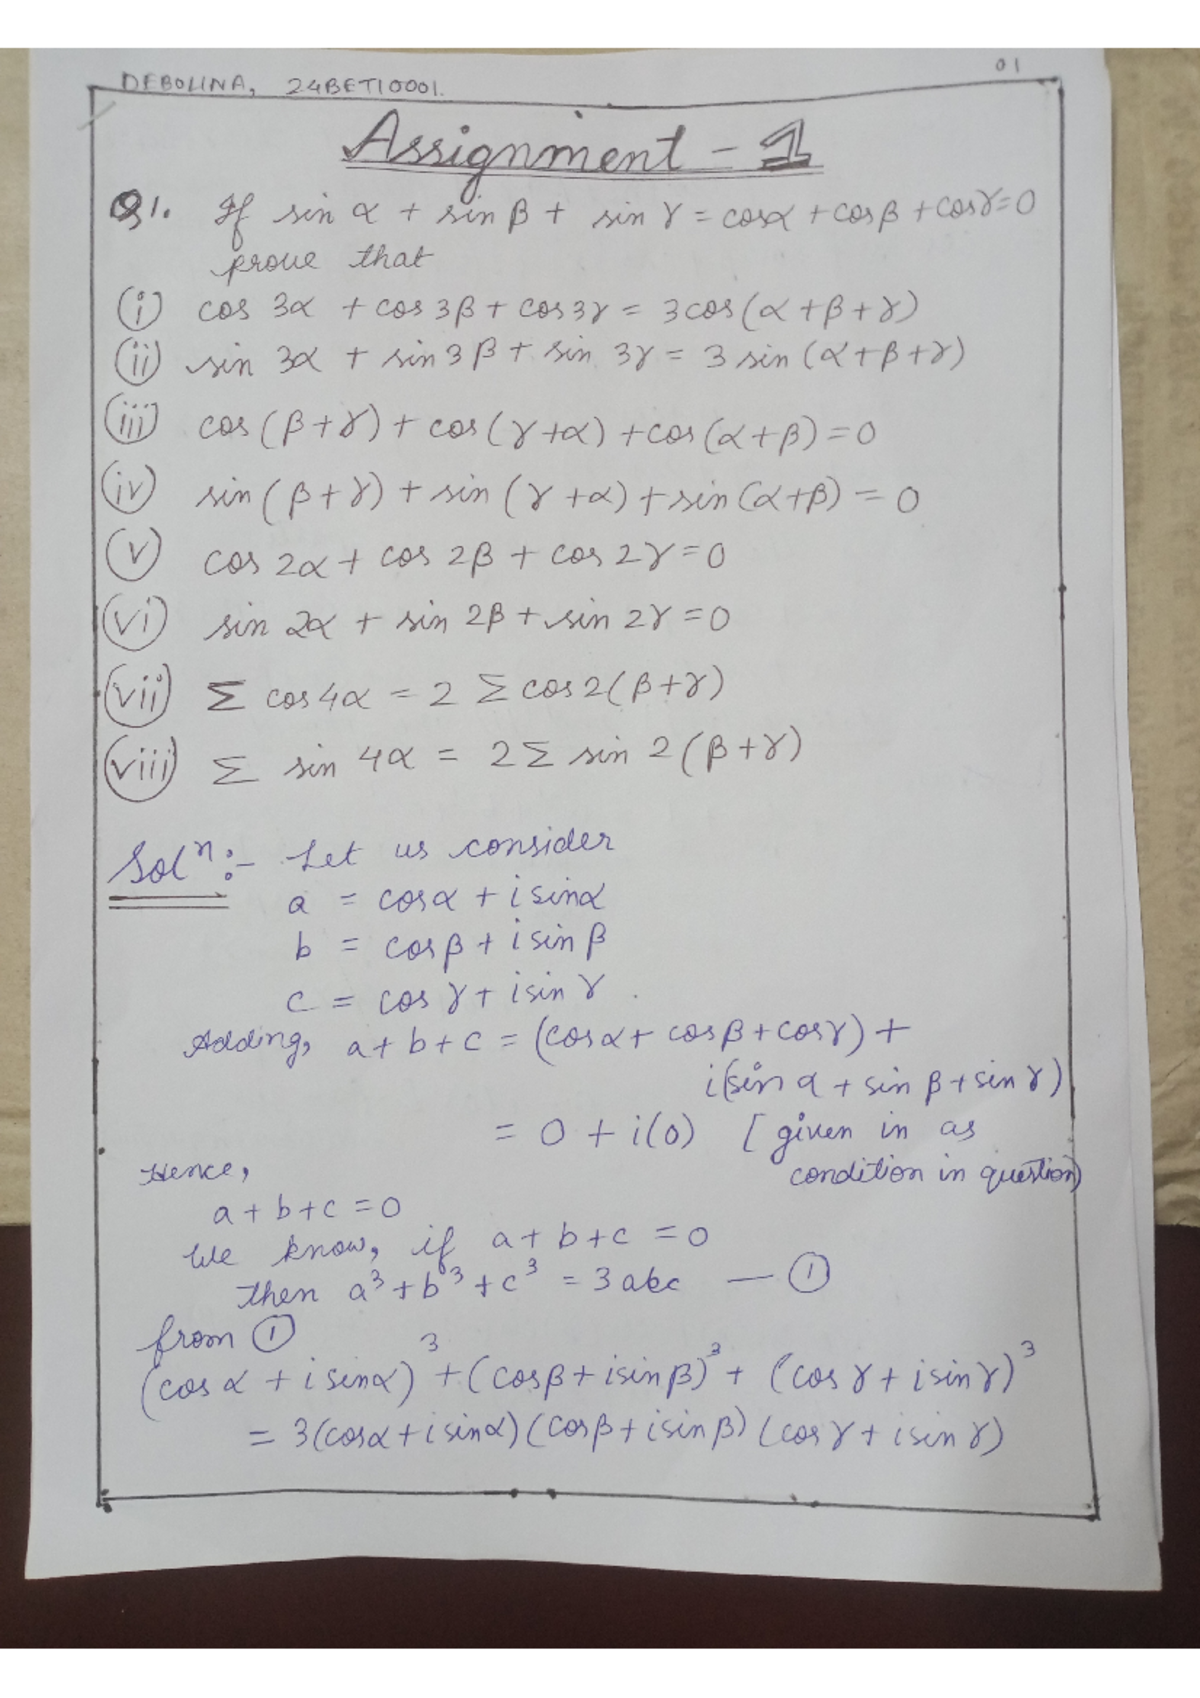 DEBOLINA, 24BET10001.
01
Assignment - 1
Q1. If sin α + sin β + sin γ = cosα + cosβ + cosγ=0
prove that
(i) cos 3α + cos 3β + cos 3γ = 3cos(α+β+γ)
(ii) sin 3α + sin 3β + sin 3γ = 3 sin (α+β+γ)
(iii) cos (β+γ) + cos(γ+α) + cos(α+β) = 0
(iv) sin (β+γ) + sin (γ+α) + sin (α+β) = 0
(v) cos 2α + cos 2β + cos 2γ = 0
(vi) sin 2α + sin 2β + sin 2γ = 0
(vii) Σ cos 4α = 2 Σ cos 2(β+γ)
(viii) Σ sin 4α = 2 Σ sin 2 (β+γ)
Solⁿ:- Let us consider
a = cosα + i sinα
b = cosβ + i sin β
c = cos γ + i sin γ.
Adding, a+b+c = (cosα + cosβ + cosγ) +
i(sin α + sin β + sin γ)
= 0 + i(0) [given in as
condition in question]
Hence,
a+b+c = 0
We know, if a+b+c = 0
then a³+b³+c³ = 3abc — ①
from ①
(cos α + i sinα)³ + (cosβ + i sin β)³ + (cos γ + i sin γ)³
= 3(cosα + i sinα) (cosβ + i sin β) (cos γ + i sin γ)